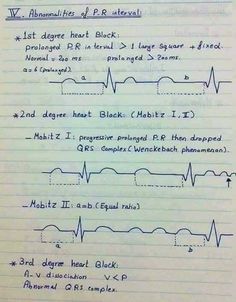 IV. Abnormalities of P.R interval:
* 1st degree heart Block:
prolonged P.R interval > 1 large square + fixed
Normal = 200 ms   prolonged > 200ms.
a = b (prolonged)
a   b
* 2nd degree heart Block: (Mobitz I, II)
- Mobitz I: progressive prolonged P.R then dropped
QRS Complex (Wenckebach phenomenon).
- Mobitz II: a=b (Equal ratio)
a   b
* 3rd degree heart Block:
A-V dissociation   V < P
Abnormal QRS complex.